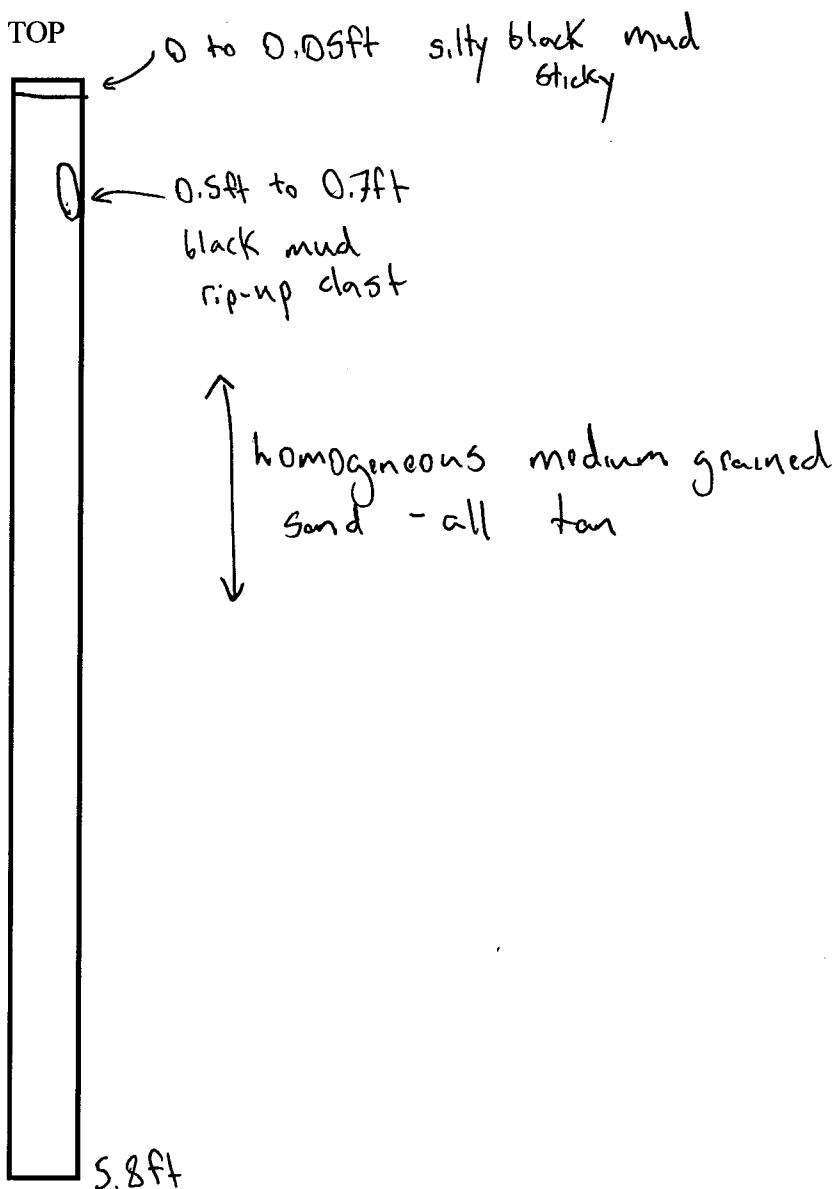 TOP
0 to 0.05ft silty black mud
sticky
0.5ft to 0.7ft
black mud
rip-up clast
homogeneous medium grained
sand - all tan
5.8ft